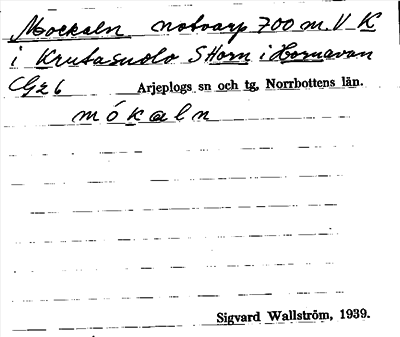 Mockaln notvarp 700 m. V K
i Krutasuolo S Horn i Hornavan
G2 b Arjeplogs sn och tg, Norrbottens län.
mókaln
Sigvard Wallström, 1939.